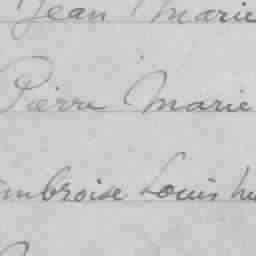 Jean Marie
Pierre Marie
mbroise Louis